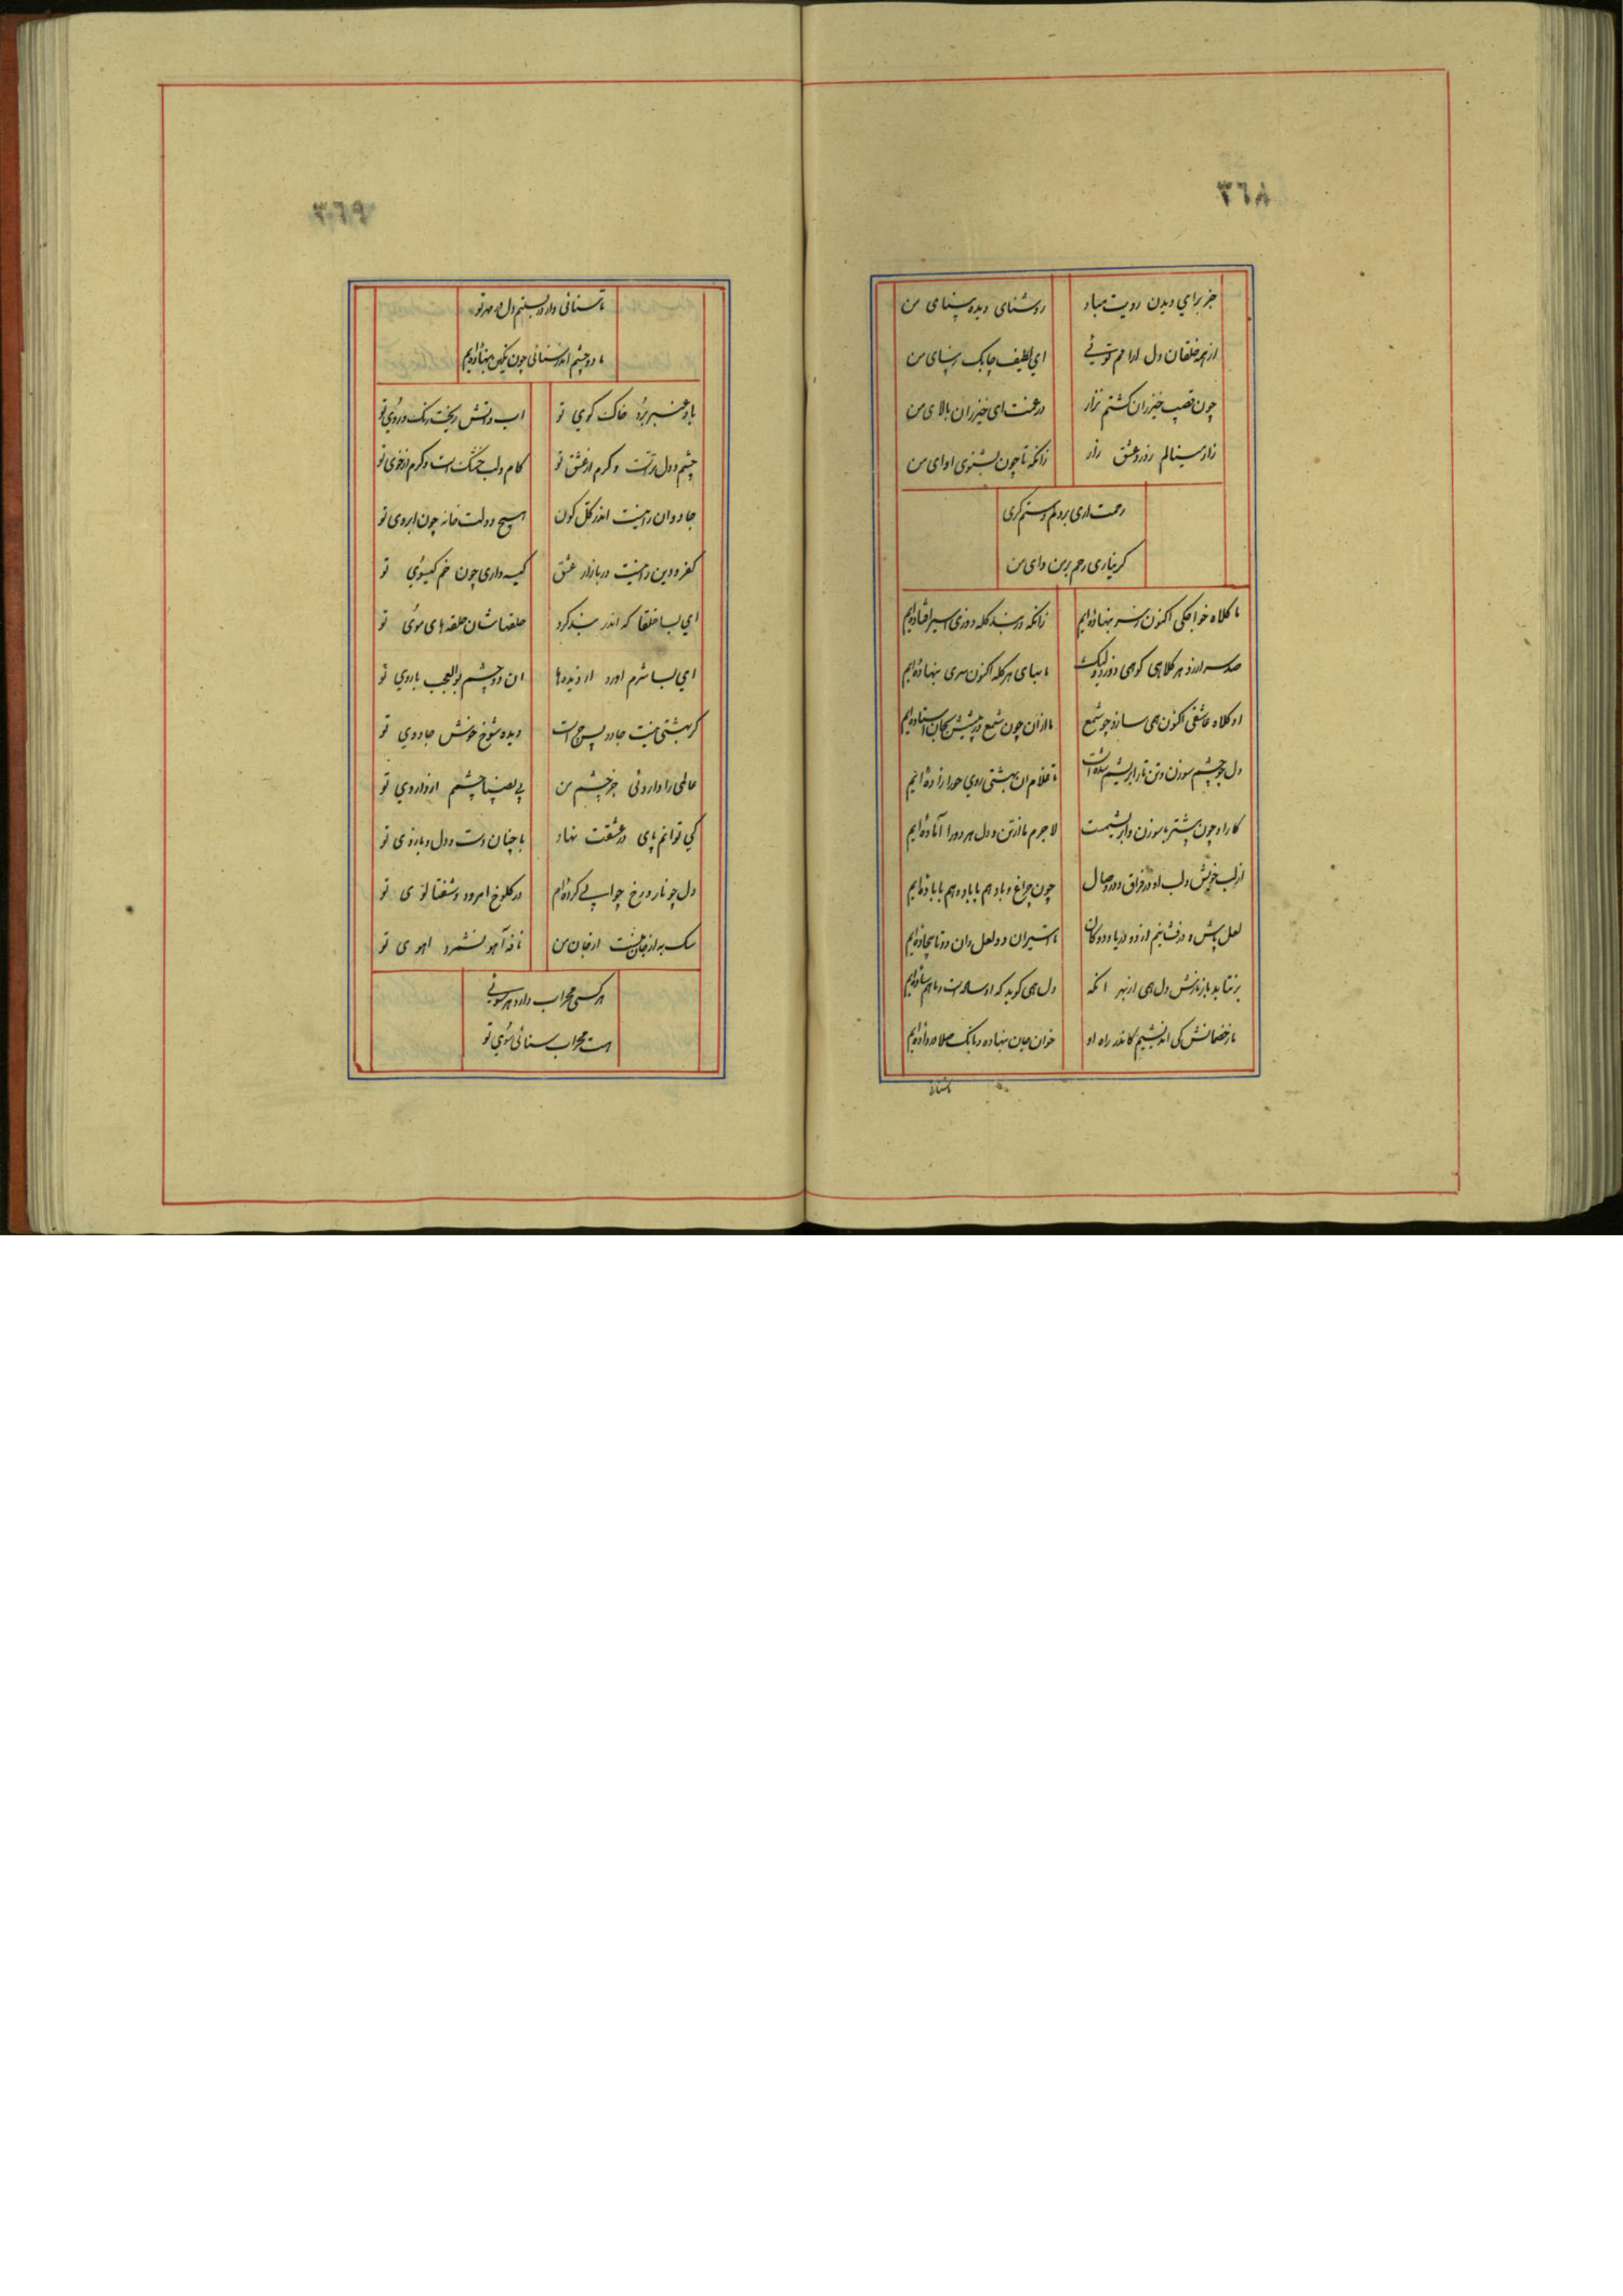 ٣٦٨
جز برای دیدن رویت مباد روشنای دیده بینای من
از همه خلقان دل ارا هم توئی ای لطیف چابک زیبای من
چون قصب خیزران کشتم نزار در غمت ای خیزران بالای من
زار مینالم ز درد عشق زار زانکه تا چون بشنوی اوای من
رحمت اری بر دلم و ستم کری
کر نیاری رحم بر من وای من
ما کلاه خواجکی اکنون ز سر بنهاده‌ایم زانکه در بند کله دوزی اسیر افتاده‌ایم
صد سر ارزد هر کلاهی کو همی دوزد ولیک ما بهای هر کله اکنون سری بنهاده‌ایم
او کلاه عاشقی اکنون همی سازد چو شمع ما از ان چون شمع در پیشش بجان استاده‌ایم
دل چو چشم سوزن و تن تار ابریشم شده است تا غلام ان بهشتی روی حورا زاده‌ایم
کار او چون بیشتر با سوزن و ابریشمست لاجرم ما از تن و دل هر دو را آماده‌ایم
از لب خویش و لب او در فراق و در وصال چون چراغ و باد هم با باد و هم بی باده‌ایم
لعل پاش و در فشانیم از دو دریا و دو کان تا اسیران دو لعل و ان دو تا بیجاده‌ایم
بر نتابد بار نازش دل همی از بهر انکه دل همی کوید که او ساده است و ما هم ساده‌ایم
ما ز خصمانش کی اندیشیم کاندر راه او خوان جان بنهاده و بانک صلا در داده‌ایم
تا سنائی
٣٦٩
تا سنائی وار در بستیم دل در مهر تو
ما دو چشم اندر سنائی چون نکین بنهاده‌ایم
باد عنبر برد خاک کوی تو اب و اتش ریخت رنک و روی تو
چشم و دل ترست و کرم از عشق تو کام و لب خشک است و کرم از خوی تو
جاودان را نیست اندر کل کون هیچ دولت خانه چون ابروی تو
کفر و دین را نیست در بازار عشق کیسه داری چون خم کیسوی تو
ای بسا خلقا که اندر بند کرد حلقهاشان حلقه های موی تو
ای بسا شرم اورد از دیده ها ان دو چشم بوالعجب با روی تو
کر بهشتی نیست جادو پس چراست دیده شوخ خوش جادوی تو
عالمی را دارد وئی جز چشم من بی نصیبا چشم از داروی تو
کی توانم پای در عشقت نهاد با چنان دست و دل و بازوی تو
دل چو نار و رخ چو ابی کرده‌ام در کلوخ امرود و شفتالوی تو
سک به از جان منست ار جان من نافه آهو نشمرد اهوی تو
هر کسی محراب دارد هر سوئی
هست محراب سنائی سوی تو